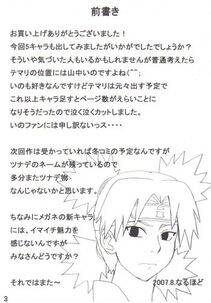 前書き
お買い上げありがとうございました！
今回5キャラも出してみましたがいかがでしたでしょうか？
そういや気づいた人もいるかもしれませんが普通考えたら
テマリの位置には山中いのですよね(^^;
いのも好きなんですけどテマリは元々出す予定で
これ以上キャラ足すとページ数がえらいことに
なりそうだったので泣く泣くカットしました。
いのファンには申し訳ないっス・・・・
次回作は受かっていれば冬コミの予定なんですが
ツナデのネームが残っているので
多分またツナデ物
なんじゃないかと思います。
ちなみにメガネの新キャラ
には、イマイチ魅力を
感じないんですが
みなさんどうすか？
それではまた～
2007.8.なるほど
3